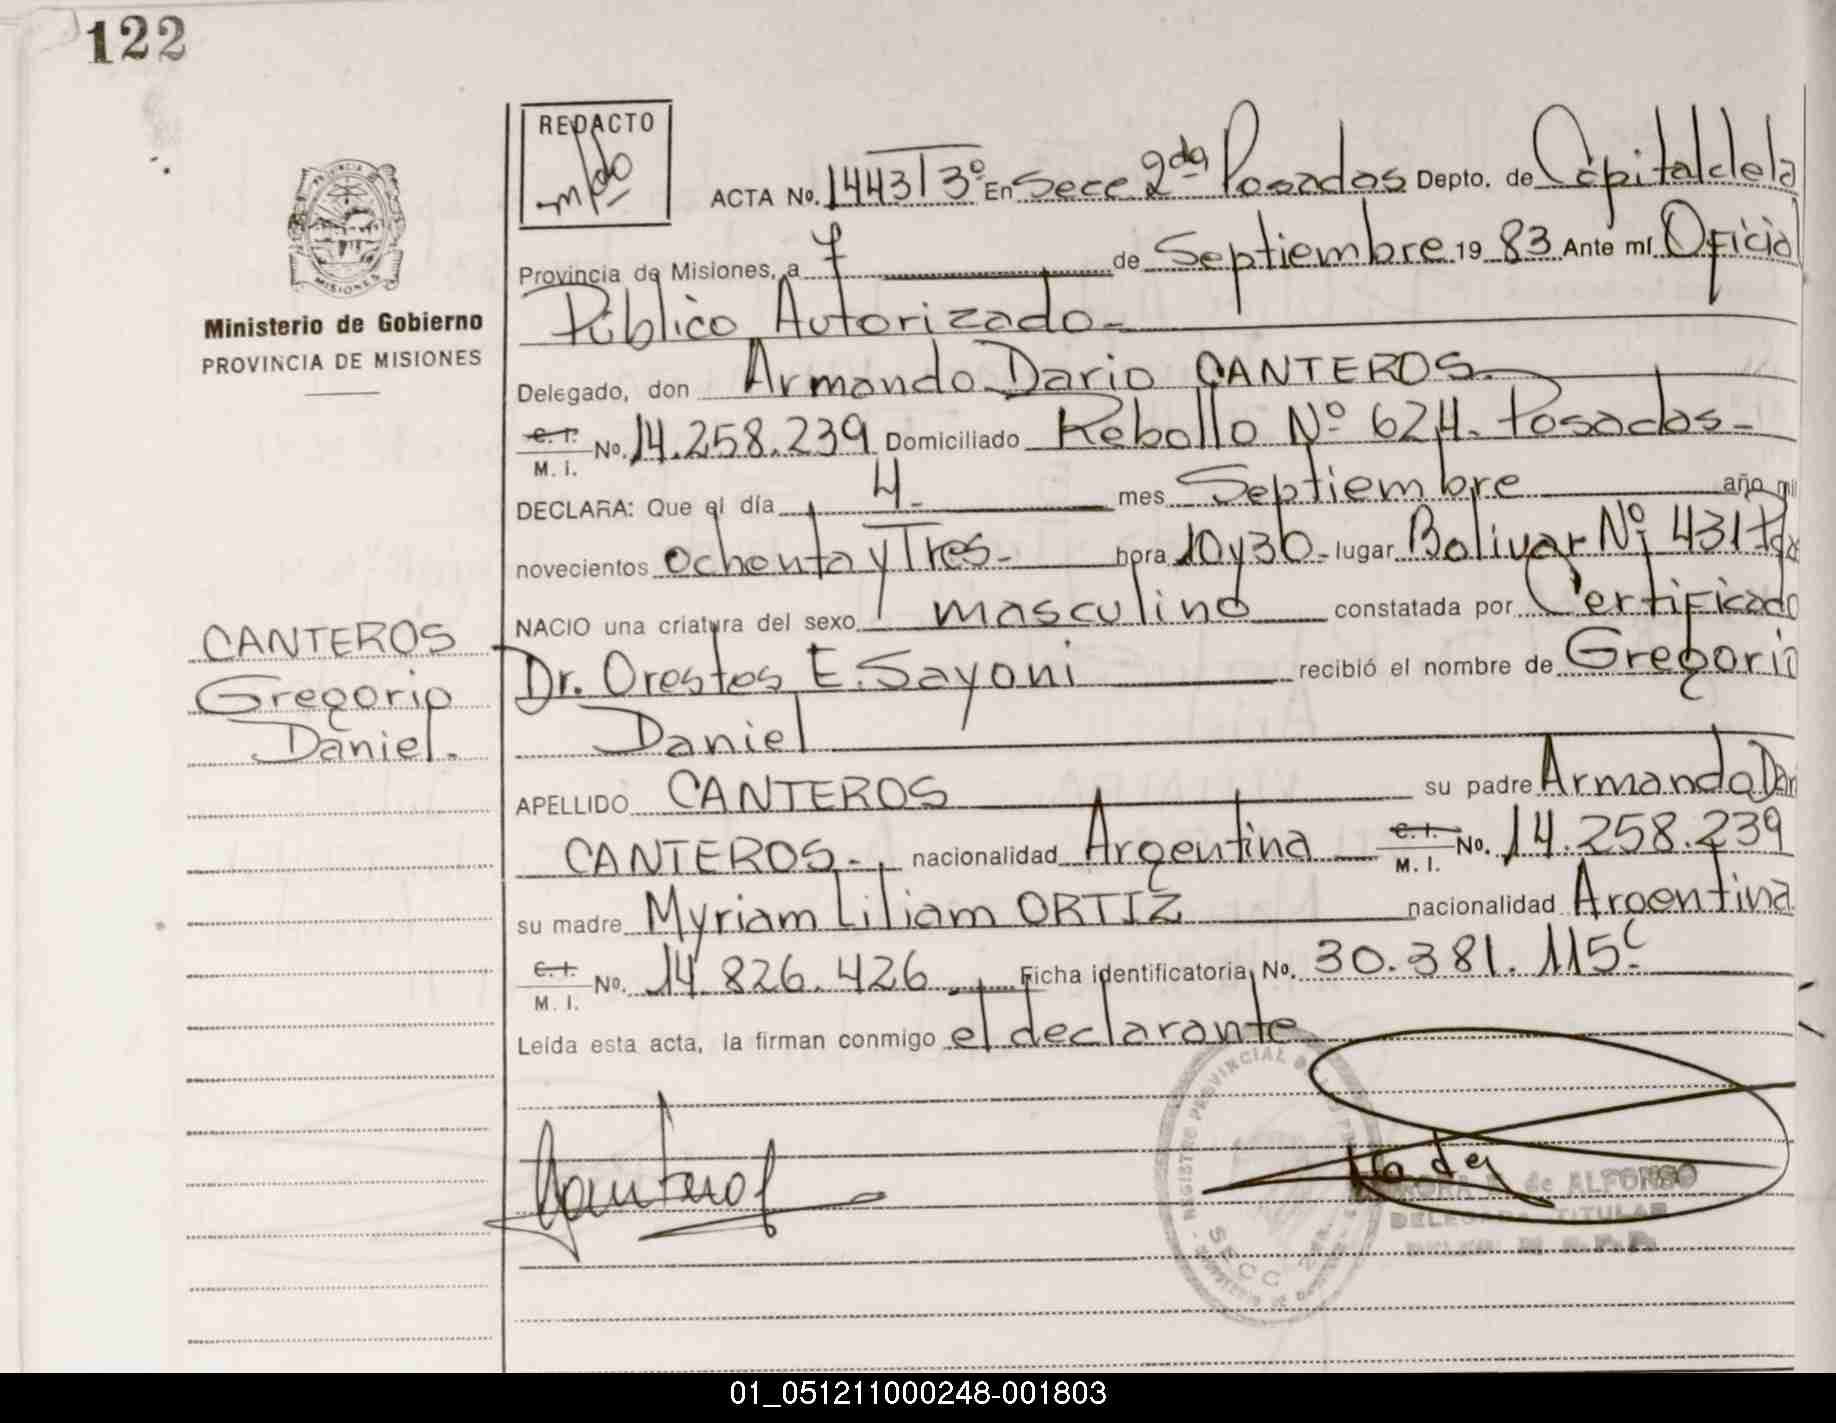 122
REDACTO
ACTA No. 1443 T 3º En Secc 2da Posadas Depto. de Capital de la
Provincia de Misiones, a 7 de Septiembre 19 83 Ante mí Oficial
Público Autorizado-
Ministerio de Gobierno
PROVINCIA DE MISIONES
Delegado, don Armando Dario CANTEROS-
C. I.
M. I. No. 14.258.239 Domiciliado Rebollo Nº 624. Posadas-
DECLARA: Que el día 4- mes Septiembre año mil
novecientos ochenta y Tres- hora 10 y 30- lugar Bolivar Nº 431 Pdas
NACIO una criatura del sexo masculino constatada por Certificado
Dr. Orestes E. Sayoni recibió el nombre de Gregorio
Daniel
CANTEROS
Gregorio
Daniel.
APELLIDO CANTEROS su padre Armando Dari
CANTEROS- nacionalidad Argentina C. I.
M. I. No. 14.258.239
su madre Myriam Liliam ORTIZ nacionalidad Argentina
C. I.
M. I. No. 14.826.426 Ficha identificatoria No. 30.381.115-
Leída esta acta, la firman conmigo el declarante
Canteros
REGISTRO PROVINCIAL
SECC
de ALFONSO
DELEGADA TITULAR
01_051211000248-001803